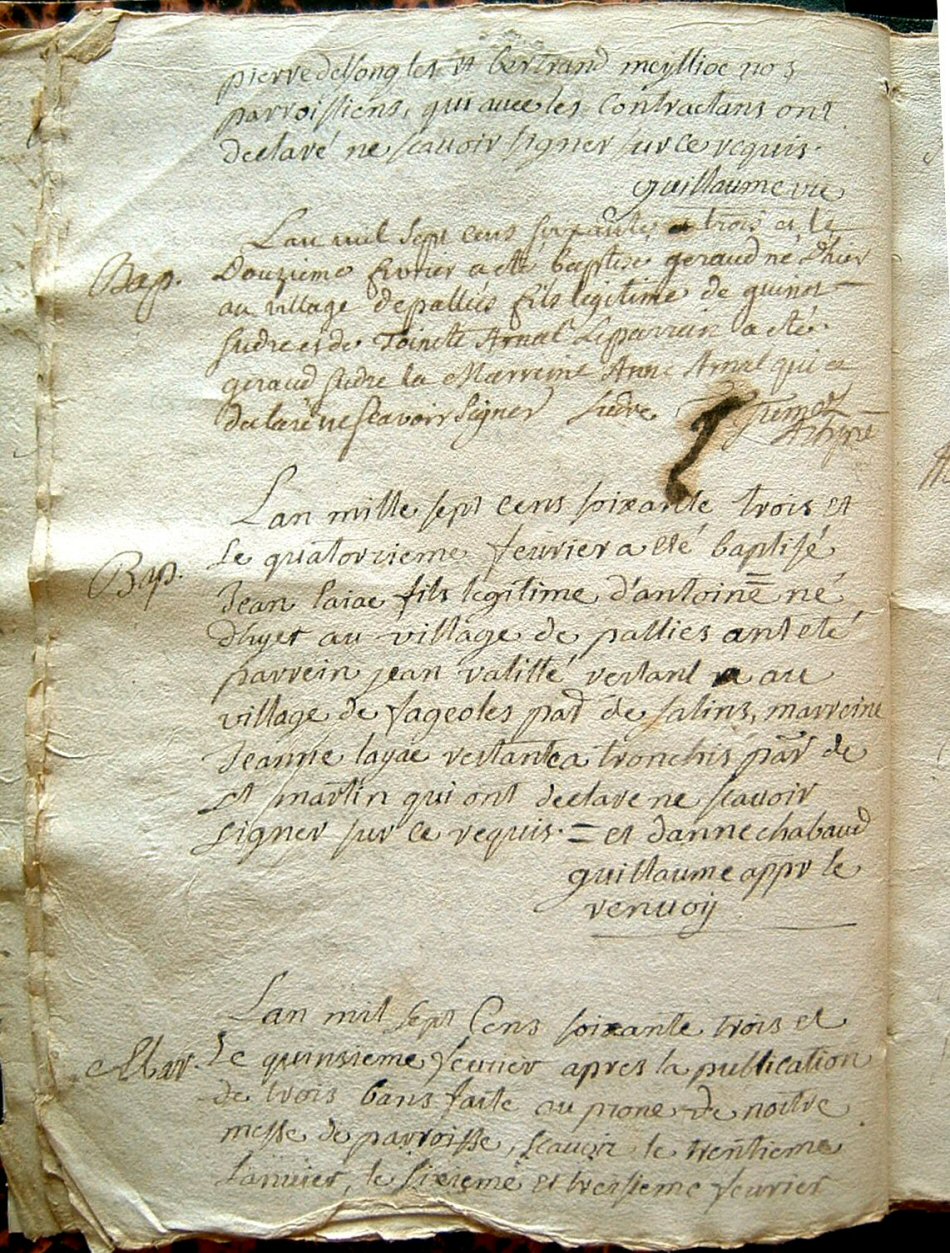 pierre delsongles et bertrand meyllioc nos
parroissiens, qui avec les Contractans ont
declaré ne scavoir signer sur ce requis.
guillaume vic
Lan mil sept cens soixante et trois et le
Bap. Douzieme fevrier a eté baptise geraud né Dhier
au village de pallies fils legitime de guinot
sudre et de Toinete Arnal Le parrein a eté
geraud sudre la Marreine Anne Arnal qui a
declaré ne scavoir signer Sudre
Lan mille sept cens soixante trois et
Bap. Le quatorzieme fevrier a eté baptisé
Jean laiac fils legitime d'antoine = né
d'hyer au village de pallies ont eté
parrein jean valitté restant au
village de fageoles par de salins, marreine
Jeanne layac restante a tronchis par de
st martin qui ont declare ne scavoir
signer sur ce requis. = et danne chabaud
guillaume appr le
renuoij
Lan mil sept Cens soixante trois et
Mar. Le quinsieme fevrier apres la publication
de trois bans faite au prone de nostre
messe de parroisse, scauoir le trentieme
Janvier, le sixieme et treisieme fevrier